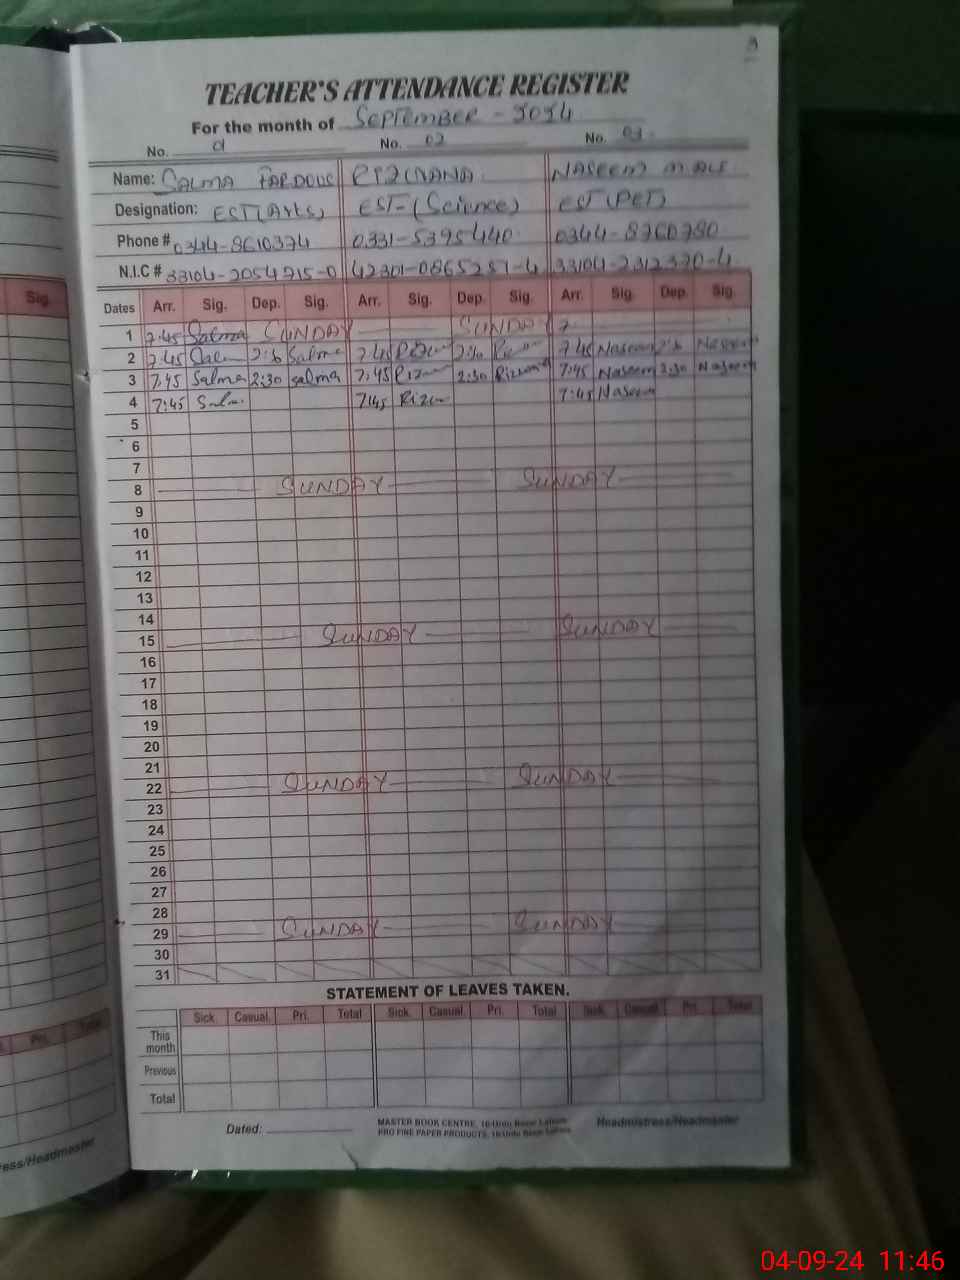 TEACHER'S ATTENDANCE REGISTER
For the month of SEPTEMBER - 2024
No. 01 No. 02 No. 03
Name: SALMA FARDOUS RIZWANA NASEEM
Designation: EST(Arts) EST-(Science) EST (PET)
Phone # 0344-8610374 0331-5395440 0344-8760780
N.I.C # 33104-2054715-0 42301-0865251-4 33104-2312330-4
Sig.
Dates Arr. Sig. Dep. Sig. Arr. Sig. Dep. Sig. Arr. Sig. Dep. Sig.
1 7:45 Salma SUNDAY SUNDAY
2 7:45 Salma 2:30 Salma 7:45 2:30 7:45 Naseem 2:30 Naseem
3 7:45 Salma 2:30 Salma 7:45 2:30 7:45 Naseem 2:30 Naseem
4 7:45 7:45 7:45 Naseem
5
6
7
8 SUNDAY SUNDAY
9
10
11
12
13
14
15 SUNDAY SUNDAY
16
17
18
19
20
21
22 SUNDAY SUNDAY
23
24
25
26
27
28
29 SUNDAY SUNDAY
30
31
STATEMENT OF LEAVES TAKEN.
Pri. Total
Sick. Casual. Pri. Total Sick. Casual. Pri. Total Sick. Casual. Pri. Total
This month
Previous
Total
Dated:
MASTER BOOK CENTRE, 16-Urdu Bazar Lahore
PRO FINE PAPER PRODUCTS, 16-Urdu Bazar Lahore
Headmistress/Headmaster
ress/Headmaster
04-09-24 11:46